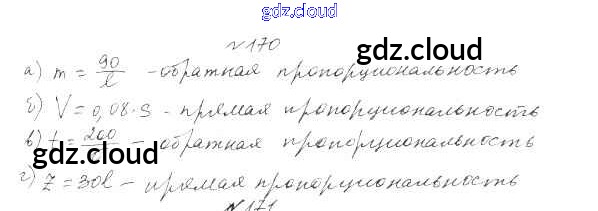 gdz.cloud
№170
gdz.cloud
а) m = 90/l - обратная пропорциональность
б) V = 0,08·S - прямая пропорциональность
в) t = 200/ - обратная пропорциональность
gdz.cloud
gdz.cloud
г) z = 30l - прямая пропорциональность
№171